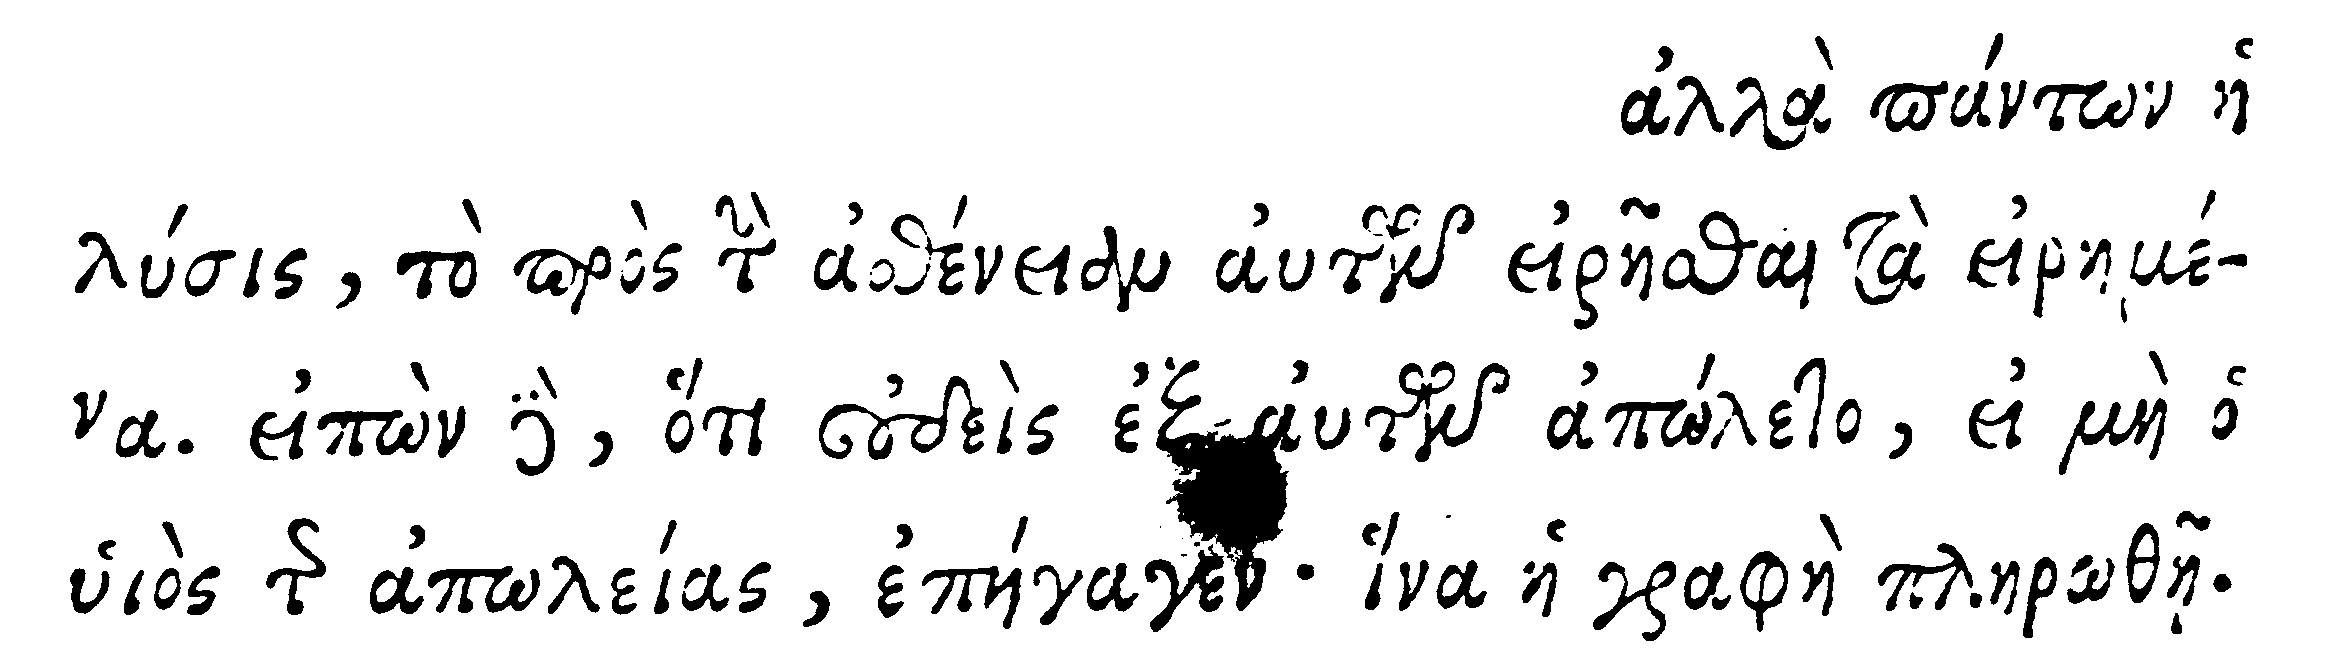 ἀλλὰ πάντων ἡ
λύσις, τὸ πρὸς τὴν ἀσθένειαν αὐτῶν εἰρῆσθαι τὰ εἰρημέ-
να. εἰπὼν δὲ, ὅτι οὐδεὶς ἐξ αὐτῶν ἀπώλετο, εἰ μὴ ὁ
ὑιὸς τῆς ἀπωλείας, ἐπήγαγεν· ἵνα ἡ γραφὴ πληρωθῇ.